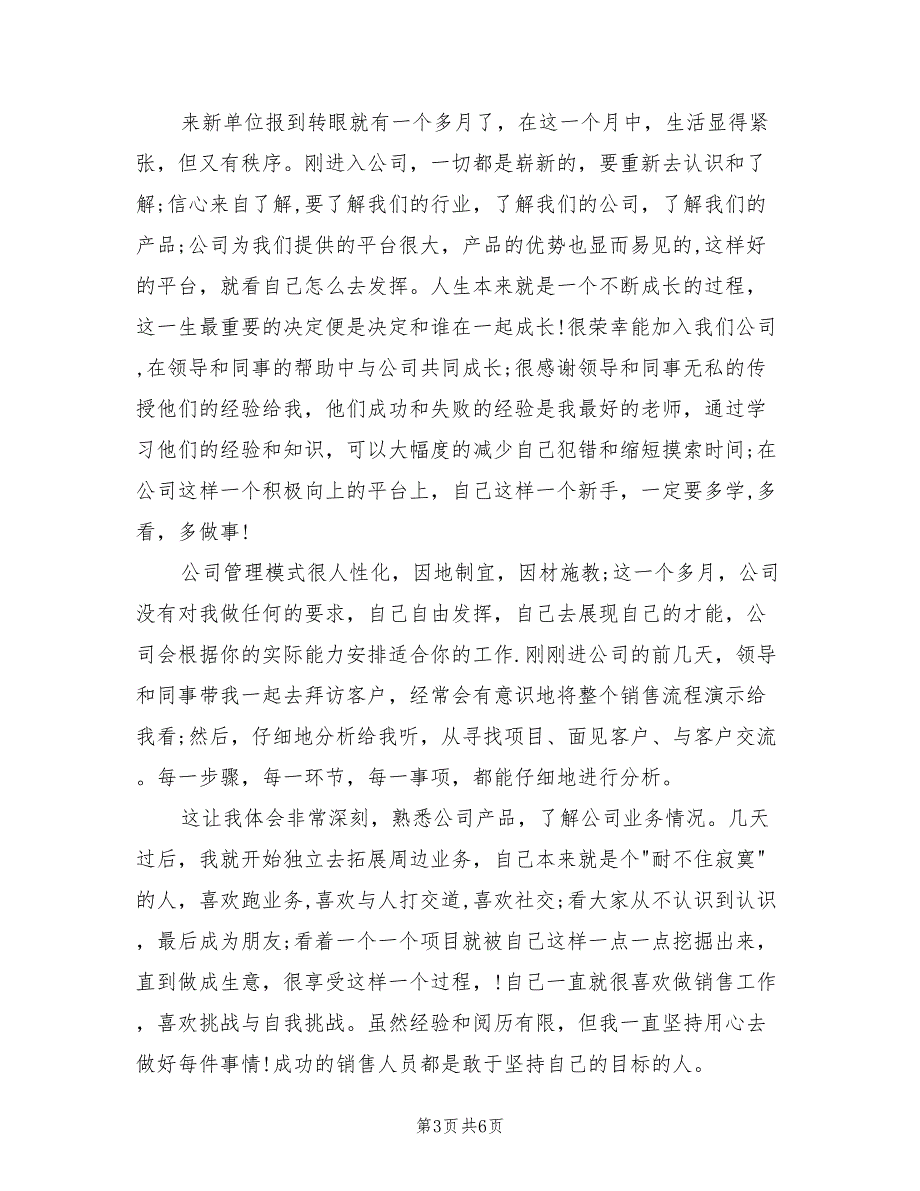 来新单位报到转眼就有一个多月了，在这一个月中，生活显得紧
张，但又有秩序。刚进入公司，一切都是崭新的，要重新去认识和了
解;信心来自了解,要了解我们的行业，了解我们的公司，了解我们的
产品;公司为我们提供的平台很大，产品的优势也显而易见的,这样好
的平台，就看自己怎么去发挥。人生本来就是一个不断成长的过程，
这一生最重要的决定便是决定和谁在一起成长!很荣幸能加入我们公司
,在领导和同事的帮助中与公司共同成长;很感谢领导和同事无私的传
授他们的经验给我，他们成功和失败的经验是我最好的老师，通过学
习他们的经验和知识，可以大幅度的减少自己犯错和缩短摸索时间;在
公司这样一个积极向上的平台上，自己这样一个新手，一定要多学,多
看，多做事!
公司管理模式很人性化，因地制宜，因材施教;这一个多月，公司
没有对我做任何的要求，自己自由发挥，自己去展现自己的才能，公
司会根据你的实际能力安排适合你的工作.刚刚进公司的前几天，领导
和同事带我一起去拜访客户，经常会有意识地将整个销售流程演示给
我看;然后，仔细地分析给我听，从寻找项目、面见客户、与客户交流
。每一步骤，每一环节，每一事项，都能仔细地进行分析。
这让我体会非常深刻，熟悉公司产品，了解公司业务情况。几天
过后，我就开始独立去拓展周边业务，自己本来就是个"耐不住寂寞"
的人，喜欢跑业务,喜欢与人打交道,喜欢社交;看大家从不认识到认识
，最后成为朋友;看着一个一个项目就被自己这样一点一点挖掘出来，
直到做成生意，很享受这样一个过程，!自己一直就很喜欢做销售工作
，喜欢挑战与自我挑战。虽然经验和阅历有限，但我一直坚持用心去
做好每件事情!成功的销售人员都是敢于坚持自己的目标的人。
第3页共6页